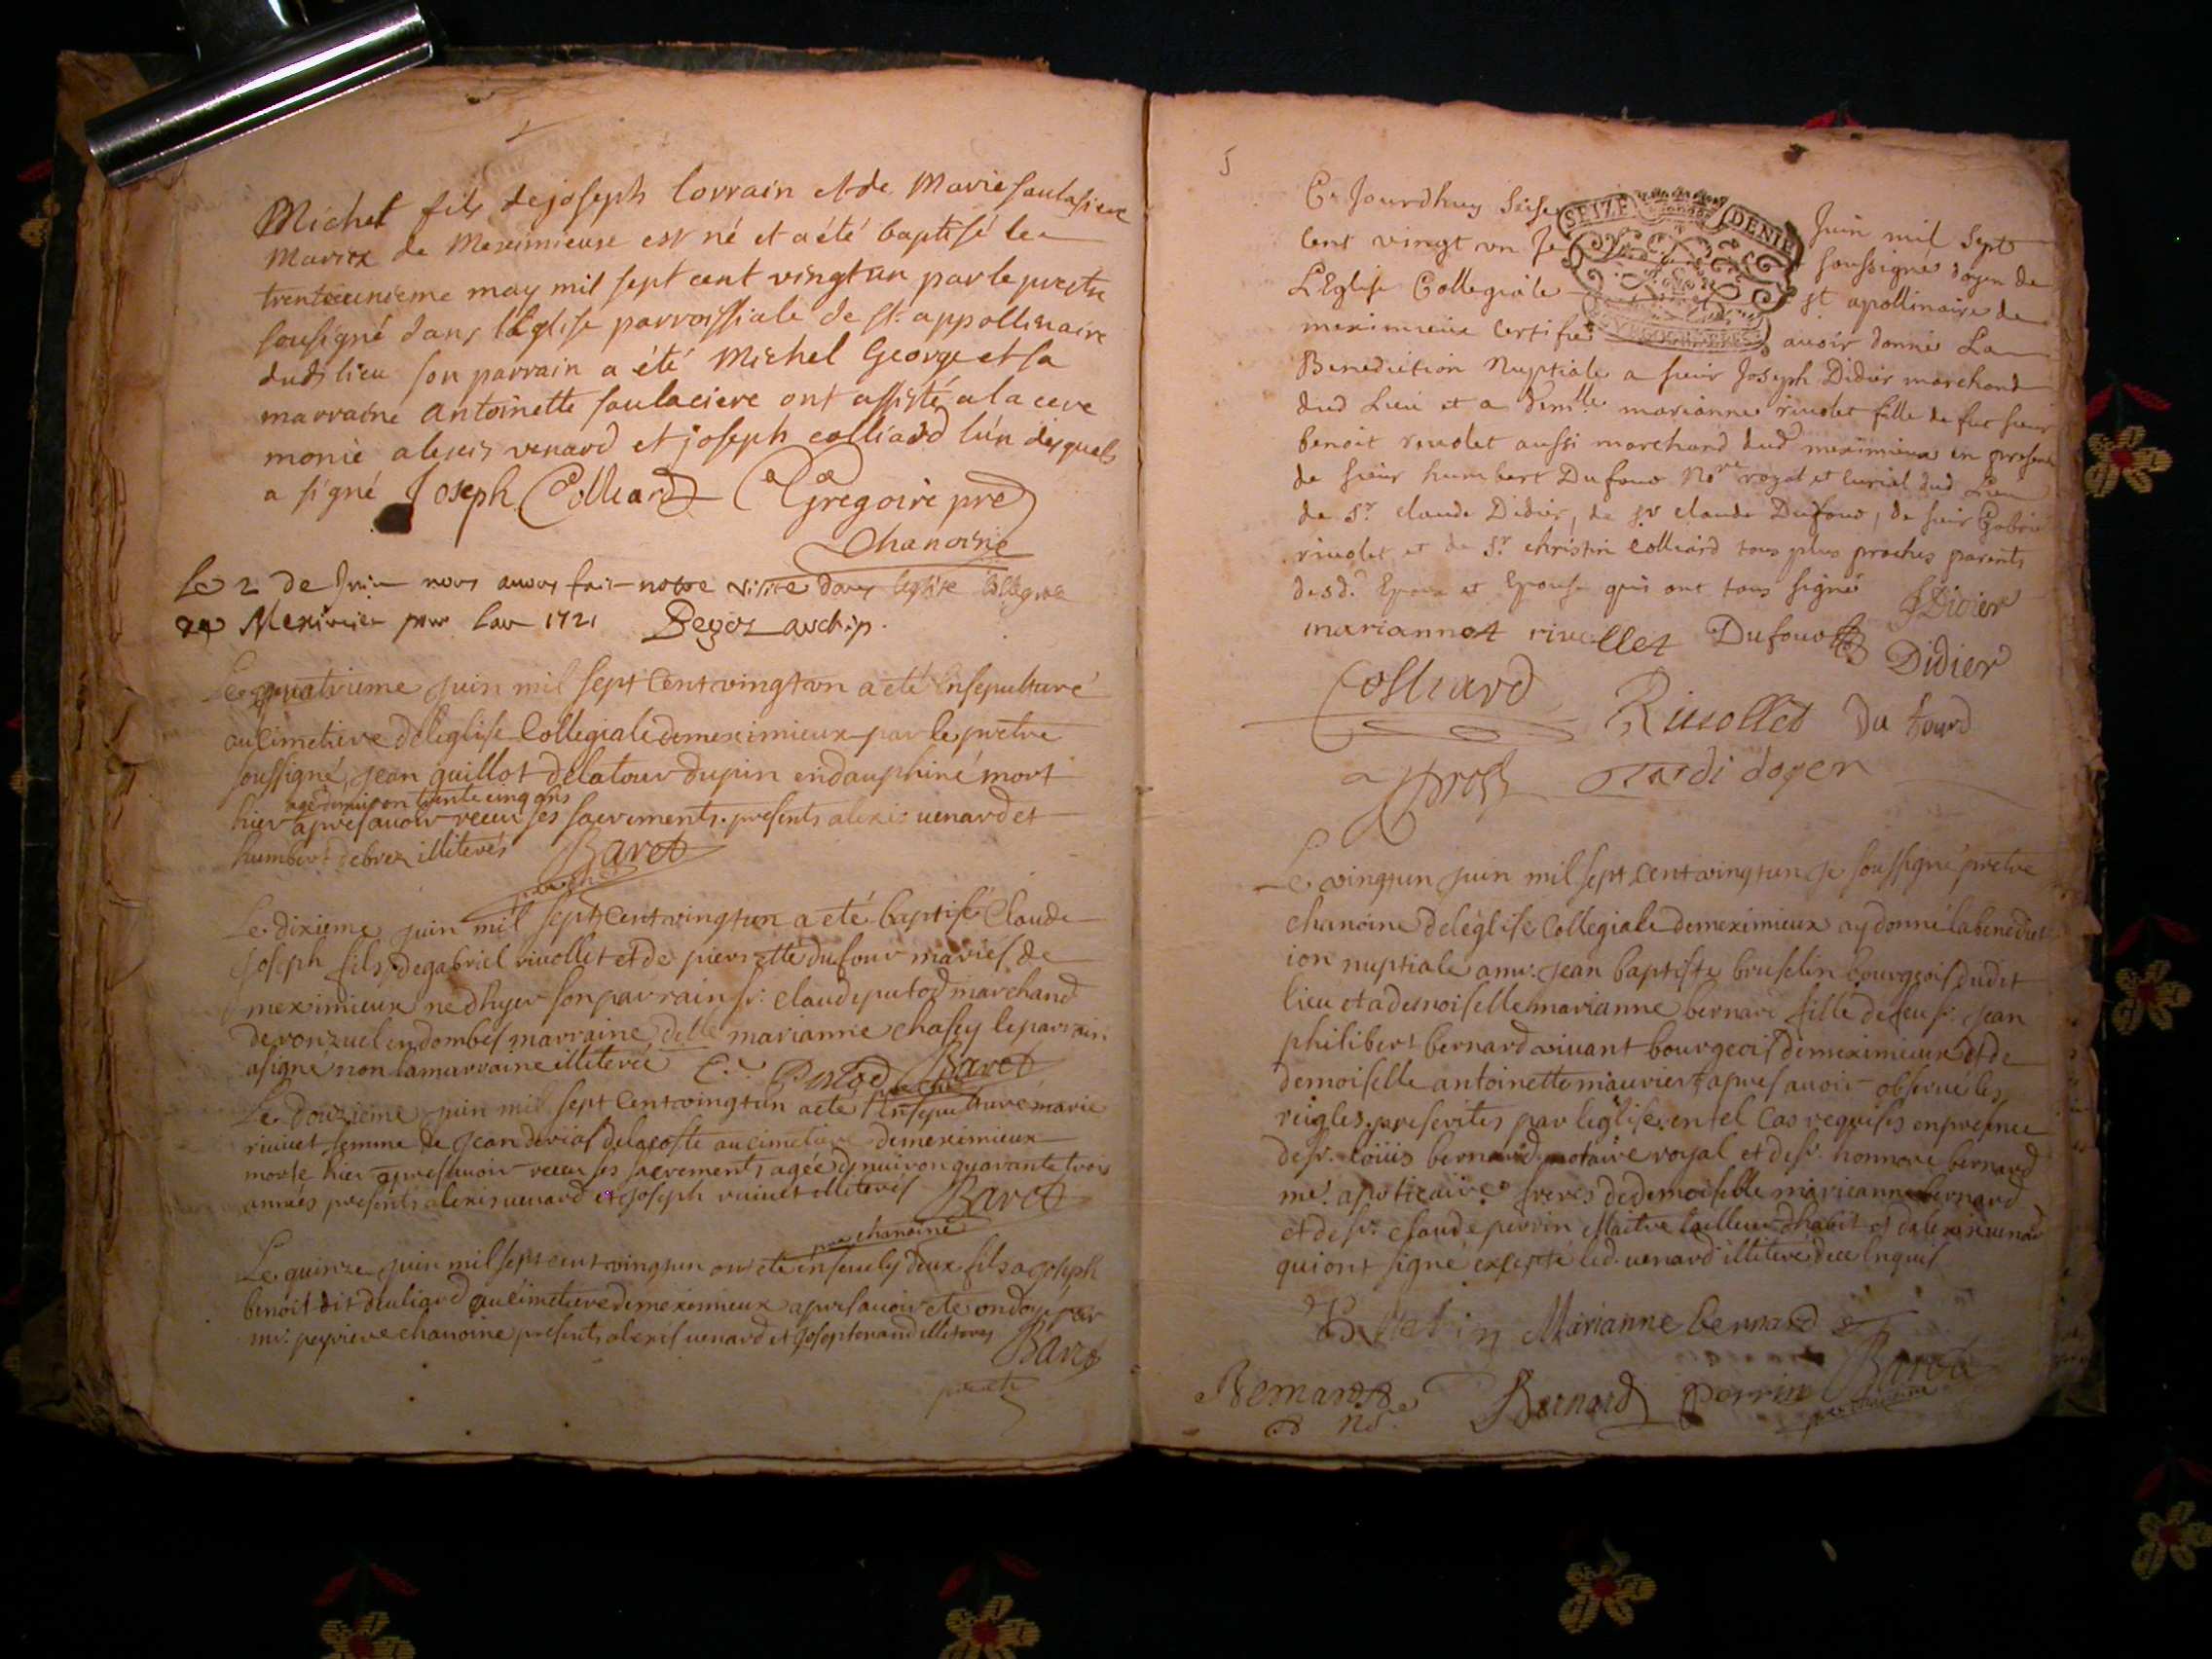 Michel fils de joseph lorrain et de Marie saulasiere
Mariez de Meximieux est né et a été baptisé le
trenteunieme may mil sept cent vingt un par le prestre
sousigné dans l'Eglise parroissiale de st. appollinaire
dudt lieu son parrain a été Michel George et sa
marraine antoinette saulaciere ont assisté a la cere
monie alexis venard et joseph colliard lún desquels
a signé Joseph Colliard Gregoire pre
Chanoine
Le 2 de Juin nous avons fait notre visite dans leglise Collegiale
de Meximieu pour lan 1721 archip.
Le quatrieme juin mil sept Cent vingt un a eté Ensepulturé
au Cimetiere de leglise Collegiale de meximieux par le pretre
soussigné, jean guillot de latour dupin en dauphiné mort
agé denviron trente cinq ans
hier apres avoir receu ses sacrements. presents alexis uenard et
humbert debrez illiterés Baret
Le dixieme juin mil sept Cent vingt un a eté baptisé Claude
joseph fils de gabriel riuollet et de pierrette dufour mariés de
meximieux ne dhyer son parrain sr. Claude putod marchand
de ronzuel en dombes marraine delle marianne chasey le parrain
a signé non la marraine illiterée C. Putod Baret
Le douzieme juin mil sept Cent vingt un a eté Ensepulturé marie
riuiret femme de jean derias delacoste au cimetiere de meximieux
morte hier apres avoir receu ses sacrements agée denuiron quarante trois
années presents alexis uenard et joseph riuiret illiterés Baret
pre chanoine
Le quinze juin mil sept cent vingt un ont eté enseuely deux fils a joseph
benoit dit deuliard au cimetiere de meximieux apres avoir ete ondoyé par
mr. peyriere chanoine presents alexis uenard et joseph illiteres
Baret
pretre
5
Ce Jourdhuy Seise Juin mil Sept
SEIZE DENIE
Cent vingt vn Je soussigné doyen de
L'Eglise Collegiale st apollinaire de
meximieux Certifie avoir donné La
Benediction Nuptiale a sieur Joseph Didier marchand
dud Lieu et a demlle marianne riuolet fille de feu sieur
benoit riuolet aussi marchand dud meximieux en presence
de sieur humbert Dufour Nore royal et curial dud Lieu
de Sr claude Didier, de sr claude Dufour, de sieur Gabriel
riuolet et de Sr christin colliard tous plus proches parents
desd. Epoux et Epouse qui ont tous signé JDidier
mariannot rivellet Dufour Didier
Colliard Riuollet Du four
Tardi doyen
Le vingt un juin mil sept Cent vingt un je soussigné pretre
chanoine de leglise Collegiale de meximieux ay donné la benedict
ion nuptiale a mr. jean baptiste bruselin bourgeois dudit
lieu et a demoiselle marianne bernard fille de feu sr. jean
philibert bernard vivant bourgeois de meximieux et de
demoiselle antoinette mauvier, apres avoir observé les
reigles prescrites par leglise en tel Cas requises en presence
de sr. Loüis bernard notaire royal et de sr. honnore bernard
me. apoticaire freres de demoiselle marieanne bernard
et de sr. claude perrin Maitre tailleur dhabit et dalexis uenard
qui ont signé excepté led. uenard illiteré de ce Enquis
Marianne bernard
Bernard Bernard Perrin Baret
nore pre chanoine